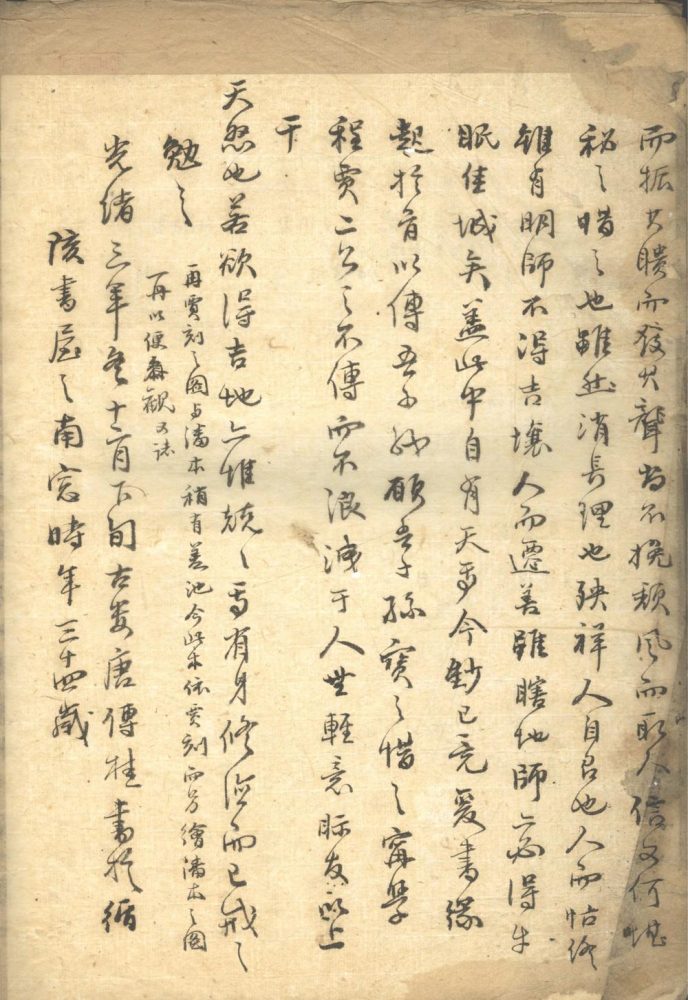 而振其聵而發其聾尚不挽頹風而取人信又何堪
秘之惜之也雖然消長理也殃祥人自召也人而怙終
雖有明師不得吉壤人而遷善雖瞎地師亦必得牛
眠佳城矣蓋此中自有天焉今鈔已竟爰書緣
起於首以傳吾子孫願吾子孫寶之惜之寗學
程賈二公之不傳而不浪洩于人世輕意眎友以上
干
天怒也若欲得吉地亦惟兢兢焉有身修德而已戒之
勉之
再賈刻之圖与潘本稍有差池今此本依賈刻而另繪潘本之圖
再以便叅觀又誌
光緒三年冬十二月下旬古婁唐傅桂書於循
陔書屋之南窓時年三十四歲